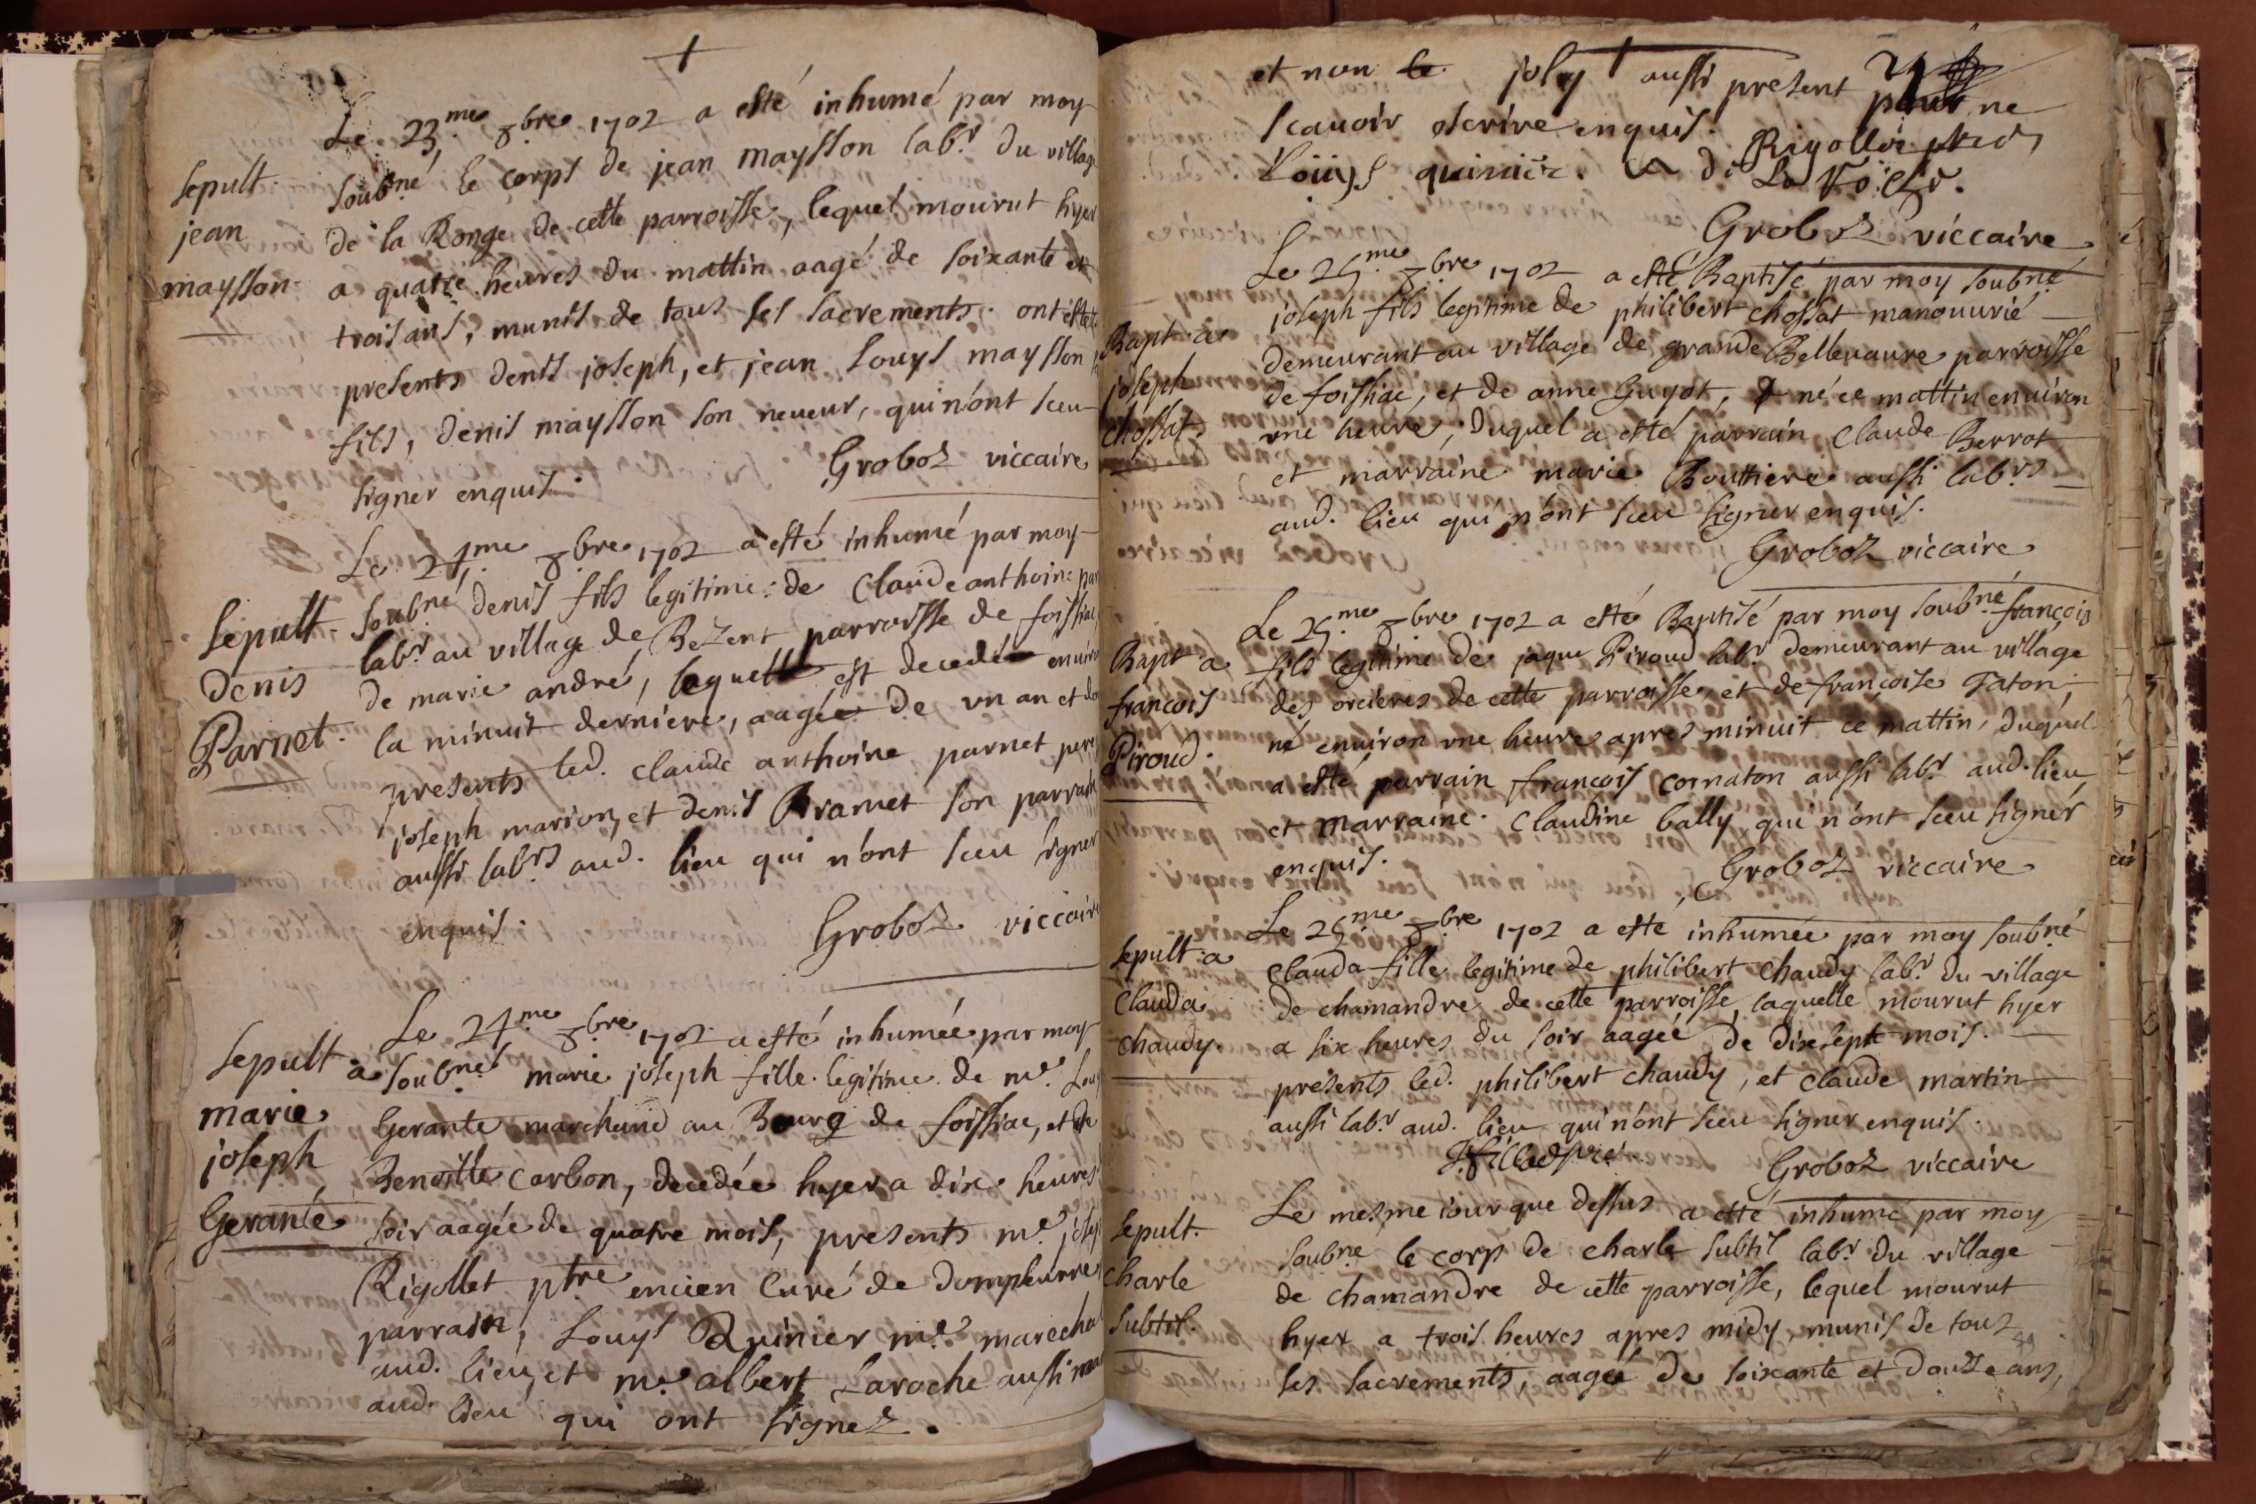 Le 23.me 8bre 1702 a esté inhumé par moy
sepult. soubné le corps de jean maysson labr. du village
jean de la Ronge de cette parroisse, lequel mourut hyer
maysson. a quatre heures du mattin aagé de soixante et
trois ans, munis de tous ses sacrements. ont esté
presents denis joseph, et jean Louys maysson
fils, denis maysson son neueur, qui n'ont sceu
signer enquis.
Groboz viccaire
Le 24.me 8bre 1702 a esté inhumé par moy
sepult. soubné denis fils legitime de Claude anthoine
denis labr. au village de Bezent parroisse de foissiac
Parnet. de marie andré, lequel est decedé enuiron
la minuit derniere, aagé de vn an et
presents led. claude anthoine parnet pere
joseph marion, et denis Bramet son parrain
aussi labrs aud. lieu qui n'ont sceu signer
enquis.
Groboz viccaire
Le 24.me 8bre 1702 a esté inhumée par moy
sepult a soubné marie joseph fille legitime de me. Louys
marie Gerante marchand au Bourg de foissiac, et de
joseph Benoitte Carbon, decedée hyer a dix heures
Gerante soir aagée de quatre mois, presents me.
Rigollet ptre encien Curé de dompleurre
parrain, Louys Quinier me. marechal
aud. lieu, et me. albert Laroche aussi
aud. lieu qui ont signez.
et non le joly aussi present pour ne
scauoir escrire enquis. Rigollet
Louys quinier. De La Roche.
Groboz viccaire
Le 25.me 8bre 1702 a esté Baptisé par moy soubné
joseph fils legitime de philibert chossat manouurié
Bapt. a demeurant au village de grande Belleuaure parroisse
joseph de foissiac, et de anne Guyot, né ce mattin enuiron
chossat. vne heure, duquel a esté parrain claude Berrot
et marraine marie Bouttiere aussi labrs
aud. lieu qui n'ont sceu signer enquis.
Groboz viccaire
Le 25.me 8bre 1702 a esté Baptisé par moy soubné françois
Bapt a fils legitime de jaque Piroud labr. demeurant au village
francois des orcieres de cette parroisse, et de françoise Taton,
Piroud. né enuiron vne heure apres minuit ce mattin, duquel
a esté parrain françois cornaton aussi labr. aud. lieu
et marraine Claudine bally qui n'ont sceu signer
enquis.
Groboz viccaire
Le 25.me 8bre 1702 a esté inhumée par moy soubné
sepult. a clauda fille legitime de philibert chaudy labr. du village
clauda de chamandre de cette parroisse, laquelle mourut hyer
chaudy. a six heures du soir aagée de dixsept mois.
presents led. philibert chaudy, et claude martin
aussi labr. aud. lieu qui n'ont sceu signer enquis.
Groboz viccaire
Le mesme iour que dessus a esté inhumé par moy
sepult. soubné le corp de charle subtil labr. du village
charle de chamandre de cette parroisse, lequel mourut
subtil. hyer a trois heures apres midy, munis de tous
ses sacrements, aagée de soixante et douze ans,